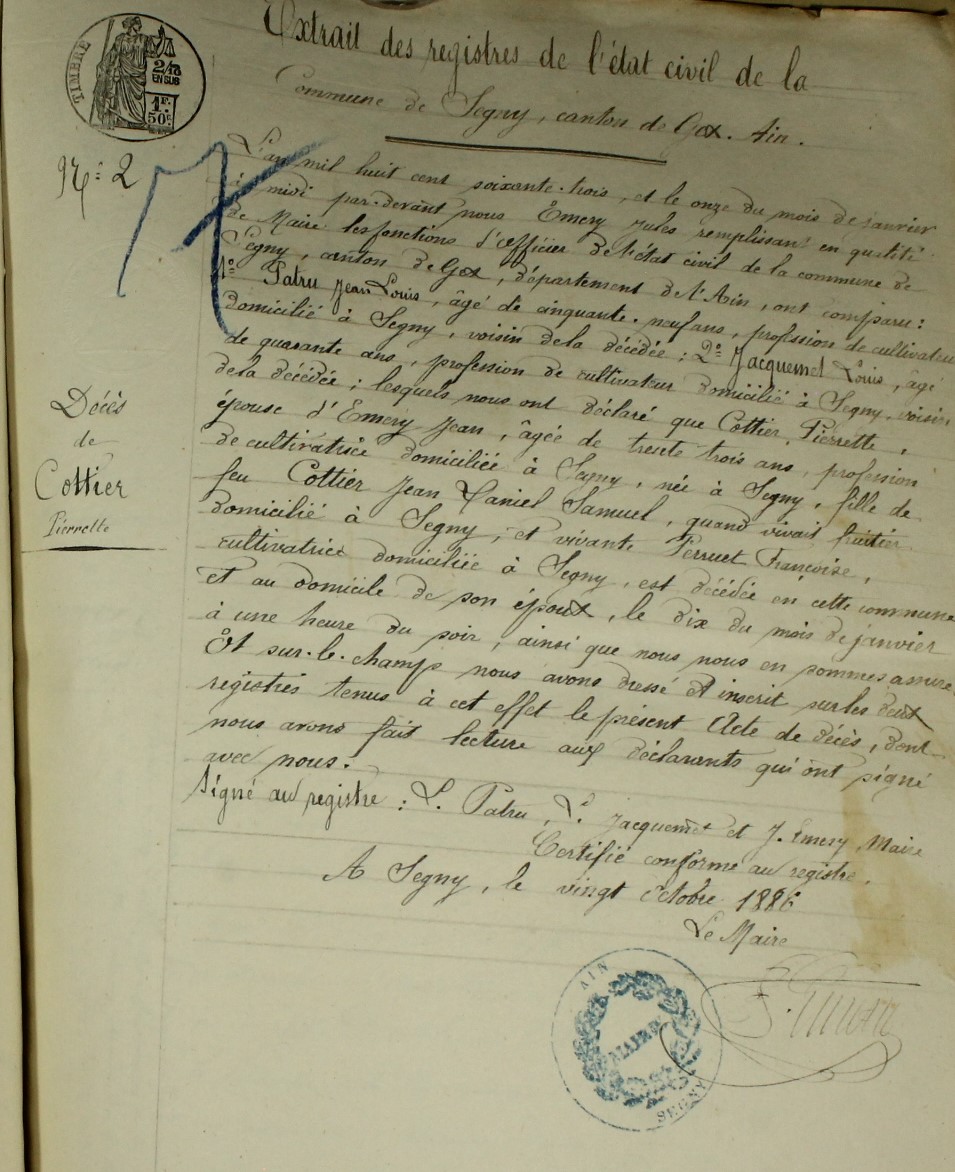 TIMBRE
2/10
EN SUS
1F.
50c
Extrait des registres de l'état civil de la
Commune de Segny, canton de Gex. Ain.
N°: 2
17
Décès
de
Cottier
Pierrette
L'an mil huit cent soixante-trois, et le onze du mois de janvier
à midi par-devant nous Emery Jules remplissant en qualité
de Maire les fonctions d'officier de l'état civil de la commune de
Segny, canton de Gex, département de l'Ain, ont comparu:
1° Patru Jean Louis, âgé de cinquante-neuf ans, profession de cultivateur
domicilié à Segny, voisin de la décédée; 2° Jacquemet Louis, âgé
de quarante ans, profession de cultivateur domicilié à Segny, voisin
de la décédée; lesquels nous ont déclaré que Cottier, Pierrette,
épouse d'Emery Jean, âgée de trente trois ans, profession
de cultivatrice domiciliée à Segny, née à Segny, fille de
feu Cottier Jean Daniel Samuel, quand vivait fruitier
domicilié à Segny, et vivante Perruet Françoise,
cultivatrice domiciliée à Segny, est décédée en cette commune
et au domicile de son époux, le dix du mois de janvier
à une heure du soir, ainsi que nous nous en sommes assuré.
Et sur-le-champ nous avons dressé et inscrit sur les deux
registres tenus à cet effet le présent Acte de décès, dont
nous avons fait lecture aux déclarants qui ont signé
avec nous.
Signé au registre: L. Patru, L. Jacquemet et J. Emery Maire
Certifié conforme au registre.
A Segny, le vingt octobre 1886
Le Maire
AIN
MAIRIE